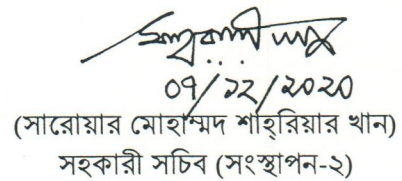 ০৭/১২/২০২০
(সারোয়ার মোহাম্মদ শাহ্‌রিয়ার খান)
সহকারী সচিব (সংস্থাপন-২)